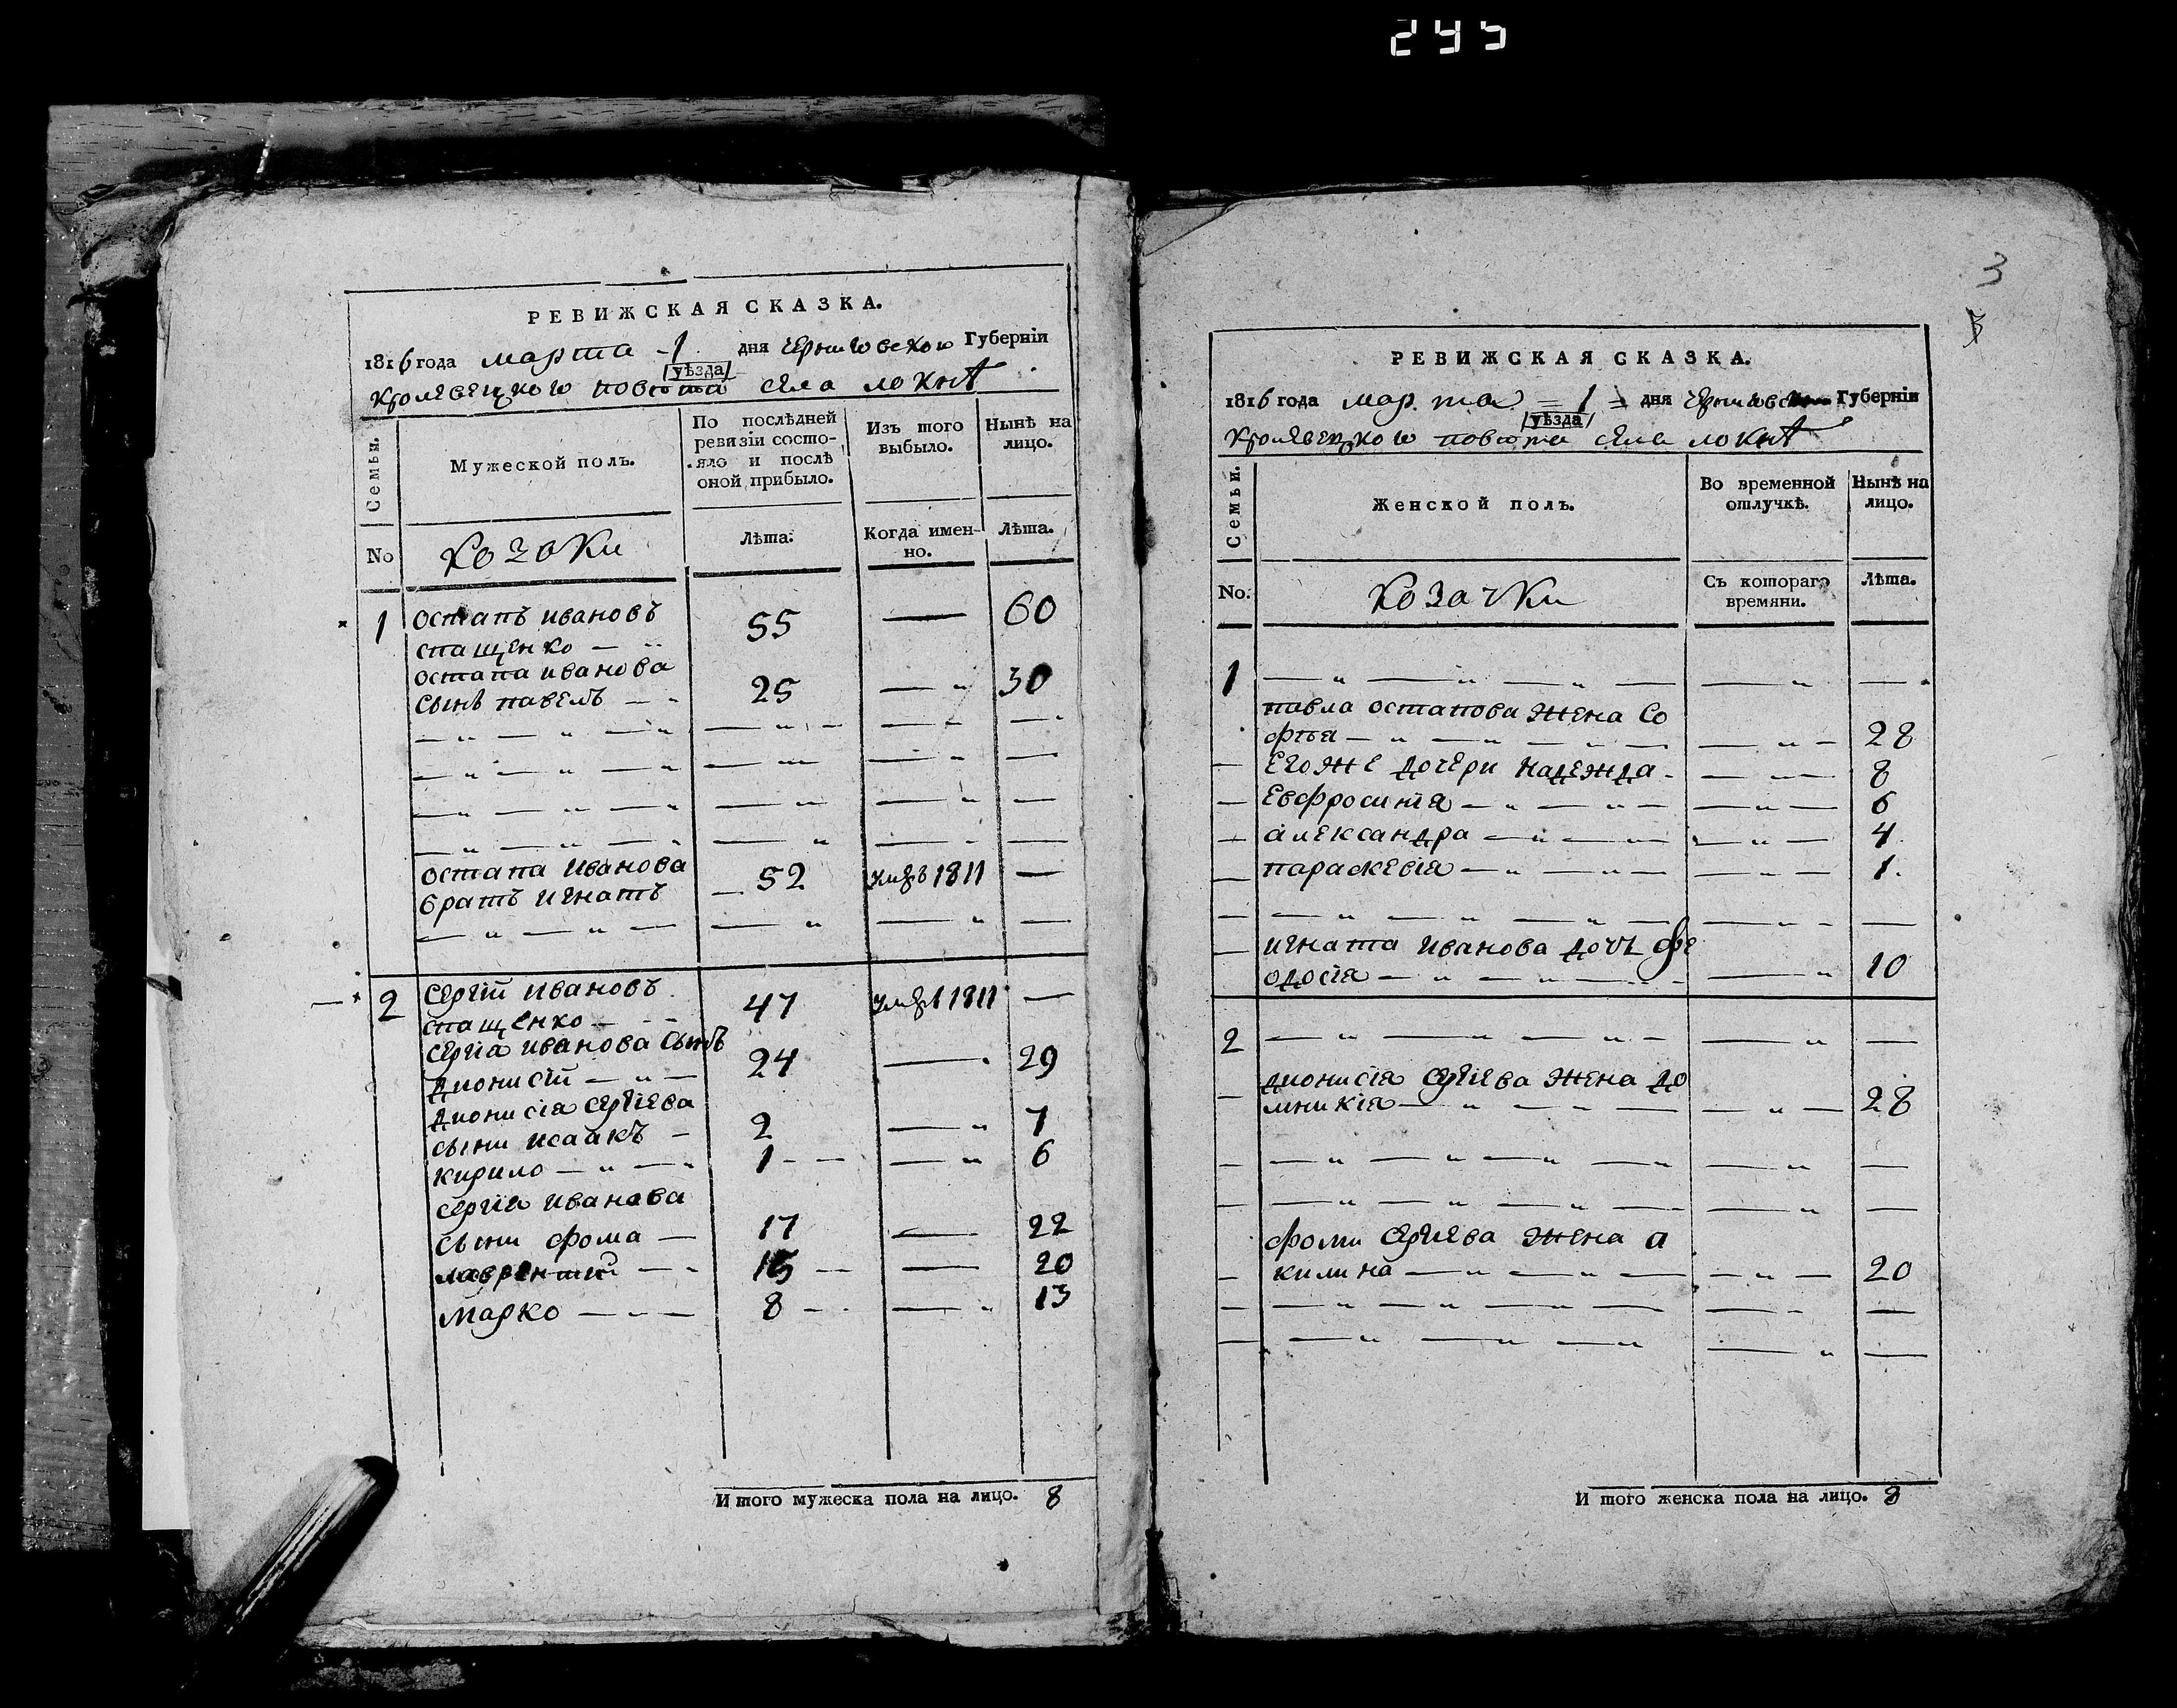 295
РЕВИЖСКАЯ СКАЗКА.
1816 года марта 1 дня Черниговской Губерніи
уѣзда
Кролевецкого повѣта села Локнѣ
Семьи.
Мужеской полъ.
По послѣдней ревизіи состояло и послѣ оной прибыло.
Изъ того выбыло.
Нынѣ на лицо.
No
козаки
Лѣта.
Когда именно.
Лѣта.
1 остапъ ивановъ
спащенко 55 — 60
остапа иванова
сынъ павелъ 25 — 30
остапа иванова
братъ игнатъ 52 1811 —
2 Сергій ивановъ
спащенко 47 1811 —
Сергіа иванова сынъ
дионисій 24 — 29
дионисіа Сергіева
сыни исаакъ 2 — 7
кирило 1 — 6
Сергіа иванова
сыни фома 17 — 22
лаврентий 15 — 20
марко 8 — 13
И того мужеска пола на лицо. 8
3
РЕВИЖСКАЯ СКАЗКА.
1816 года марта 1 дня Черниговской Губерніи
уѣзда
Кролевецкого повѣта села Локнѣ
Семьи.
Женской полъ.
Во временной отлучкѣ.
Нынѣ на лицо.
No.
козачки
Съ котораго времяни.
Лѣта.
1
павла остапова жена Со
фія 28
Его же дочери надежда 8
Евфросинія 6
александра 4
параскевіа 1.
игната иванова дочь фе
одосіа 10
2
дионисіа Сергіева жена до
мникіа 28
фоми Сергіева жена а
килина 20
И того женска пола на лицо. 8